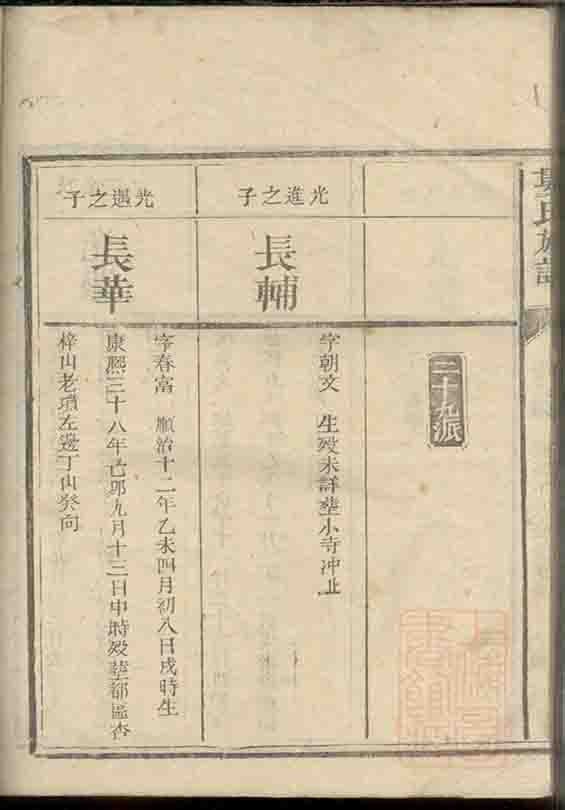 氏族譜
二十九派
光進之子
長輔
字朝文 生歿未詳塟小寺沖㘴
光遇之子
長華
字春富 順治十二年乙未四月初八日戌時生
康熙三十八年己卯九月十三日申時歿塟都區杏
梓山老墳左邊丁山癸向